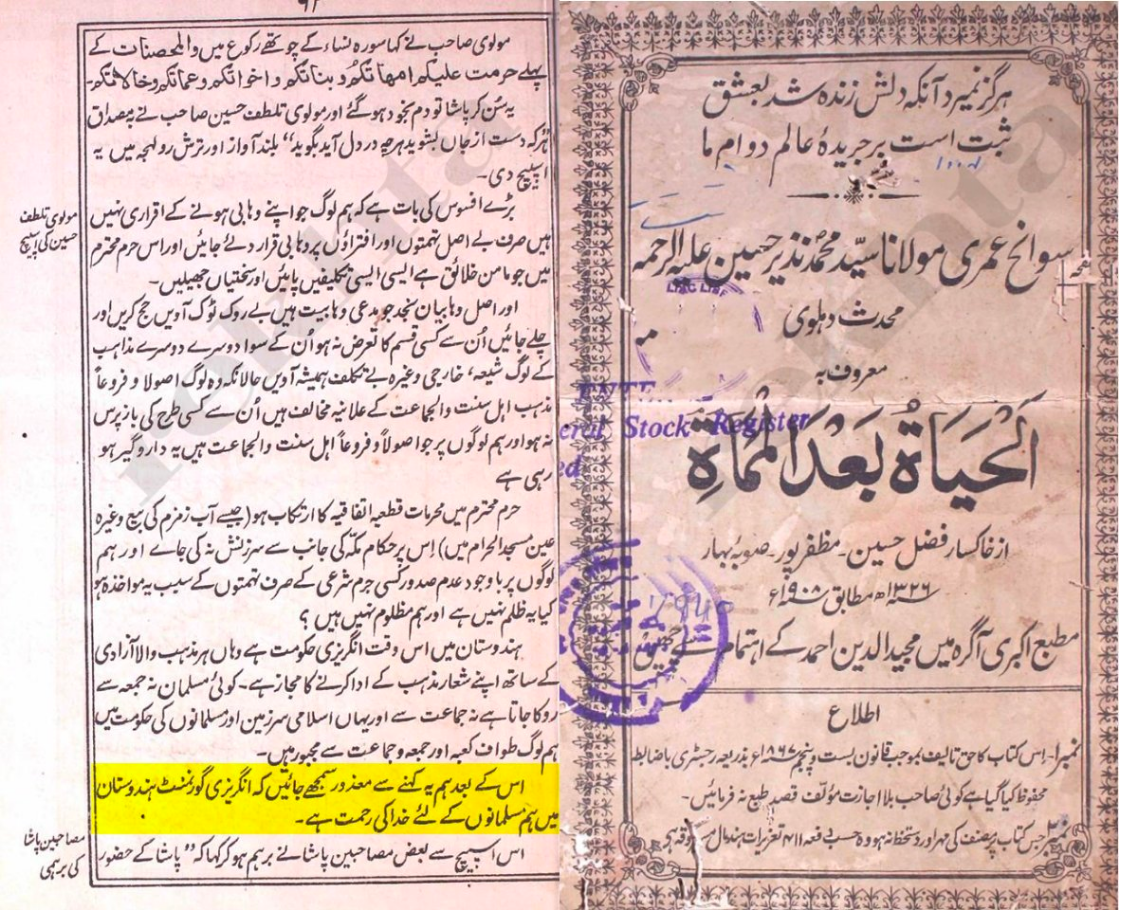 ۹۲
مولوی صاحب نے کہا سورہ نساء کے چوتھے رکوع میں والمحصنات کے
پہلے حرمت علیکم امهاتکم وبناتکم و اخواتکم وعماتکم وخالاتکم۔
یہ سُن کر پاشا تو دم بخود ہو گئے اور مولوی تلطف حسین صاحب نے بمصداق
"ہر کہ دست از جاں بشوید ہرچہ در دل آید بگوید" بلند آواز اور ترش رو لہجہ میں یہ
اسپیچ دی۔
مولوی تلطف
حسین کی اسپیچ
بڑے افسوس کی بات ہے کہ ہم لوگ جو اپنے وہابی ہونے کے اقراری نہیں
ہیں صرف بے اصل تہمتوں اور افتراؤں پر وہابی قرار دئے جائیں اور اس حرم محترم
میں جو مامن خلائق ہے ایسی ایسی تکلیفیں پائیں اور سختیاں جھیلیں۔
اور اصل وہابیان نجد جو مدعی وہابیت ہیں بے روک ٹوک آویں حج کریں اور
چلے جائیں اُن سے کسی قسم کا تعرض نہ ہو اُن کے سوا دوسرے دوسرے مذاہب
کے لوگ شیعہ، خارجی وغیرہ بے تکلف ہمیشہ آویں حالانکہ وہ لوگ اصولا و فروعاً
مذہب اہل سنت والجماعت کے علانیہ مخالف ہیں اُن سے کسی طرح کی باز پرس
نہ ہو اور ہم لوگوں پر جو اصولاً و فروعاً اہل سنت والجماعت ہیں یہ دار و گیر ہو
رہی ہے
حرم محترم میں محرمات قطعیہ اتفاقیہ کا ارتکاب ہو (جیسے آب زمزم کی بیع وغیرہ
عین مسجد الحرام میں) اِس پر حکام مکّہ کی جانب سے سرزنش نہ کی جاے اور ہم
لوگوں پر باوجود عدم صدور کسی جرم شرعی کے صرف تہمتوں کے سبب یہ مواخذہ ہو
کیا یہ ظلم نہیں ہے اور ہم مظلوم نہیں ہیں ؟
ہندوستان میں اس وقت انگریزی حکومت ہے وہاں ہر مذہب والا آزادی
کے ساتھ اپنے شعار مذہب کے ادا کرنے کا مجاز ہے۔ کوئی مسلمان نہ جمعہ سے
روکا جاتا ہے نہ جماعت سے اور یہاں اسلامی سرزمین اور مسلمانوں کی حکومت میں
ہم لوگ طواف کعبہ اور جمعہ و جماعت سے مجبور ہیں۔
اس کے بعد ہم یہ کہنے سے معذور سمجھے جائیں کہ انگریزی گورنمنٹ ہندوستان
میں ہم مسلمانوں کے لئے خدا کی رحمت ہے۔
مصاحبین پاشا
کی برہمی
اس اسپیچ سے بعض مصاحبین پاشا نے برہم ہو کر کہا کہ "پاشا کے حضور
ہرگز نمیرد آنکہ دلش زندہ شد بعشق
ثبت است بر جریدۂ عالم دوام ما
سوانح عمری مولانا سیّد محمد نذیر حسین علیہ الرحمہ
محدث دہلوی
معروف بہ
اَلْحَیَاۃُ بَعْدَ الْمَمَاۃِ
Stock Register
از خاکسار فضل حسین۔ مظفر پور۔ صوبۂ بہار
۱۳۲۶ھ مطابق سنہ ۱۹۰۸ء
مطبع اکبری آگرہ میں مجید الدین احمد کے اہتمام سے چھپی
اطلاع
نمبر۱۔ اِس کتاب کا حق تالیف بموجب قانون بست و پنجم ۱۸۶۷ء بذریعہ رجسٹری باضابطہ
محفوظ کیا گیا ہے کوئی صاحب بلا اجازت مؤلف قصد طبع نہ فرمائیں۔
نمبر۲۔ جس کتاب پر مصنف کی مہر اور دستخط نہ ہو وہ حسب دفعہ ۴۱۱ تعزیرات ہند مال مسروقہ ہے
rekhta